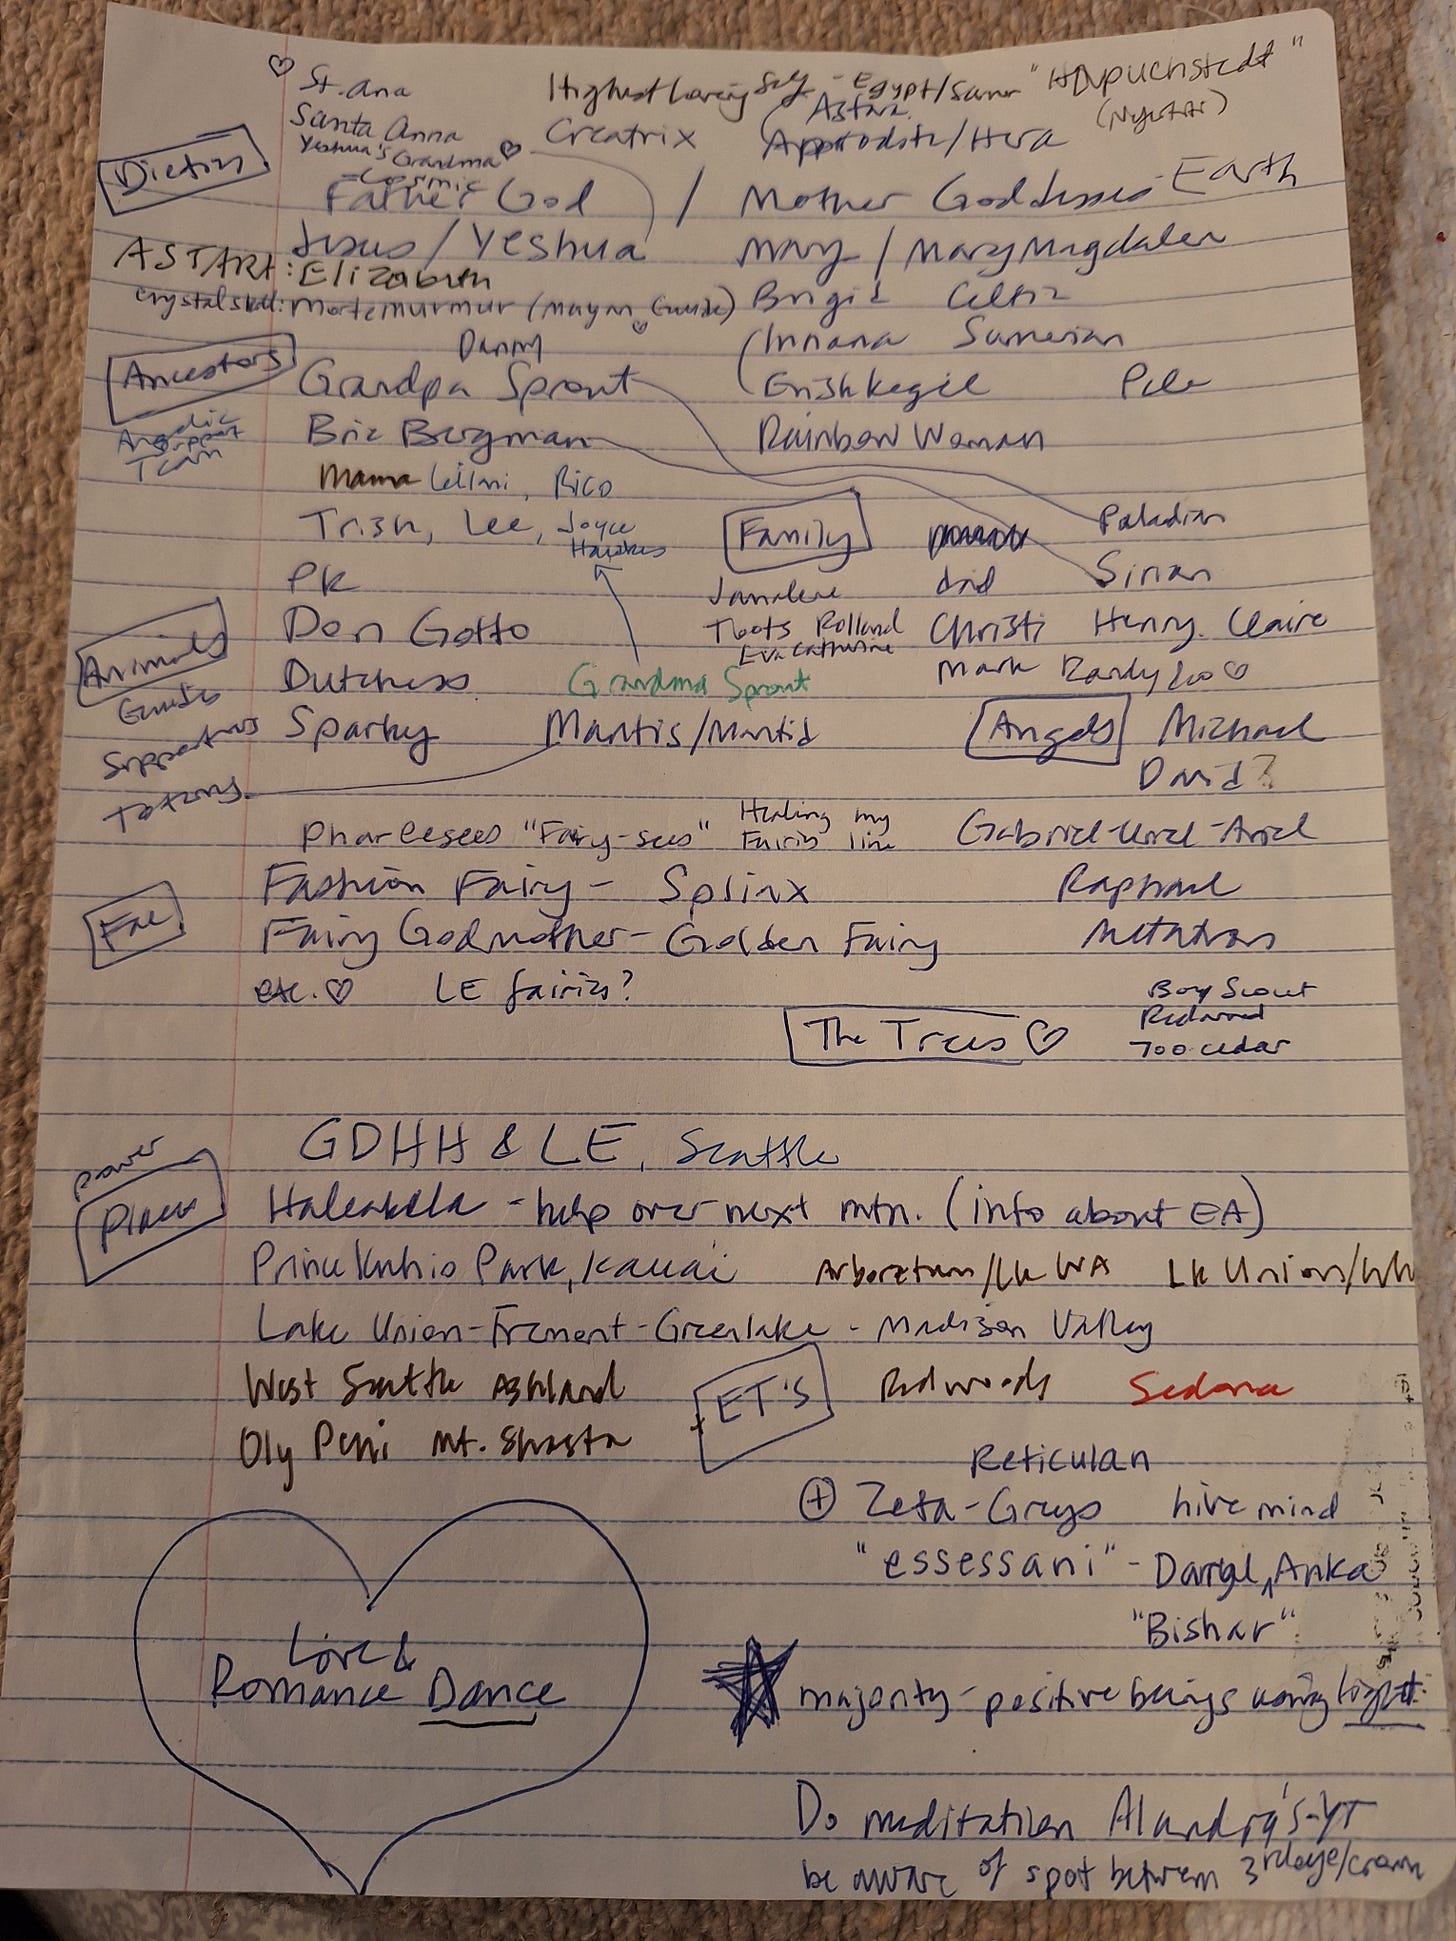 ♡ St. Ana
Highest Loving Self - Egypt/Sumer
Santa Anna
Creatrix
Yeshua's Grandma ♡
Approdste/Hera
Dieties
Cosmic
Father God / Mother Goddesses - Earth
Jesus / Yeshua
Mary / Mary Magdalen
ASTART: Elizabeth
Crystal skull: Mortemurmur (Mayan Guide)
Brigid Celtic
Danny
Innana Sumerian
Ancestors
Grandpa Sprout
Erishkegil Pele
Angelic Support Team
Bric Bergman
Rainbow Woman
Mama Leilani, Rico
Trish, Lee, Joyce Hawkes
Family
Paladian
PK
dad
Sirian
Don Gotto
Toots Rolland
Christi Henry Claire
Eva Catherine
Animals
Dutchess
Grandma Sprout
Mark Randy
Guides
Sparky
Mantis/Mantid
Angels
Michael
Supporters
David?
Totems
Phareesees "Fairy-sees" Healing my Fairies line
Gabriel-Uriel-Ariel
Fashion Fairy - Sphinx
Raphael
Fae
Fairy Godmother - Golden Fairy
Metatron
etc. ♡ LE fairies?
Boy Scout
The Trees ♡
Redwood
700 cedar
GDHH & LE, Seattle
Power Places
Haleakela - help over next mtn. (info about EA)
Prince Kuhio Park, Kauai Arboretum/Lk WA Lk Union/Wh
Lake Union - Fremont - Greenlake - Madison Valley
West Seattle Ashland
ET'S
Redwoods Sedona
Oly Peni Mt. Shasta
Reticulan
⊕ Zeta-Greys hive mind
"essessani" - Darryl, Anka
"Bishar"
Love &
Romance Dance
majority - positive beings using light
Do meditation Alandra's-YT
be aware of spot between 3rd eye/crown